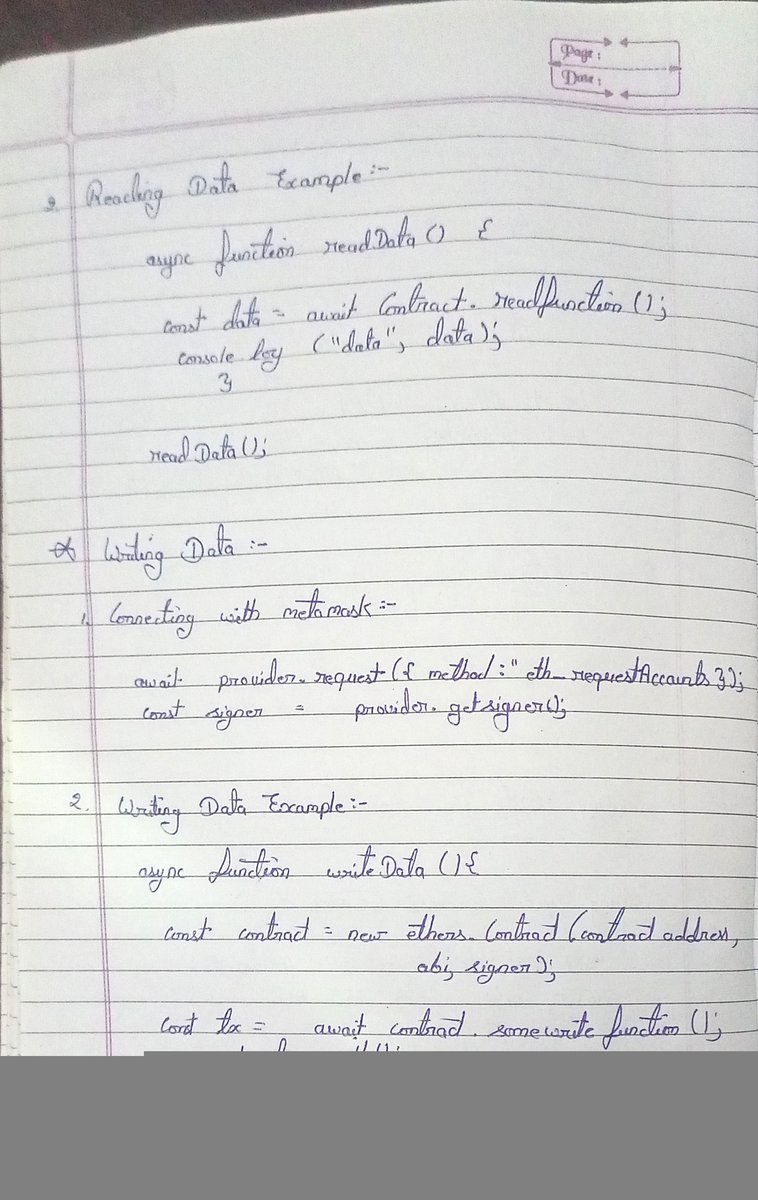 Page :
Date :
2. Reading Data Example :-
async function readData () {
const data = await Contract. readfunction ();
console log ("data", data);
}
readData();
Writing Data :-
1. Connecting with metamask :-
await provider. request ({ method : " eth_requestAccounts });
const signer = provider. getsigner();
2. Writing Data Example :-
async function writeData () {
const contract = new ethers. Contract (contract address,
abi, signer);
const tx = await contract. somewrite function ();